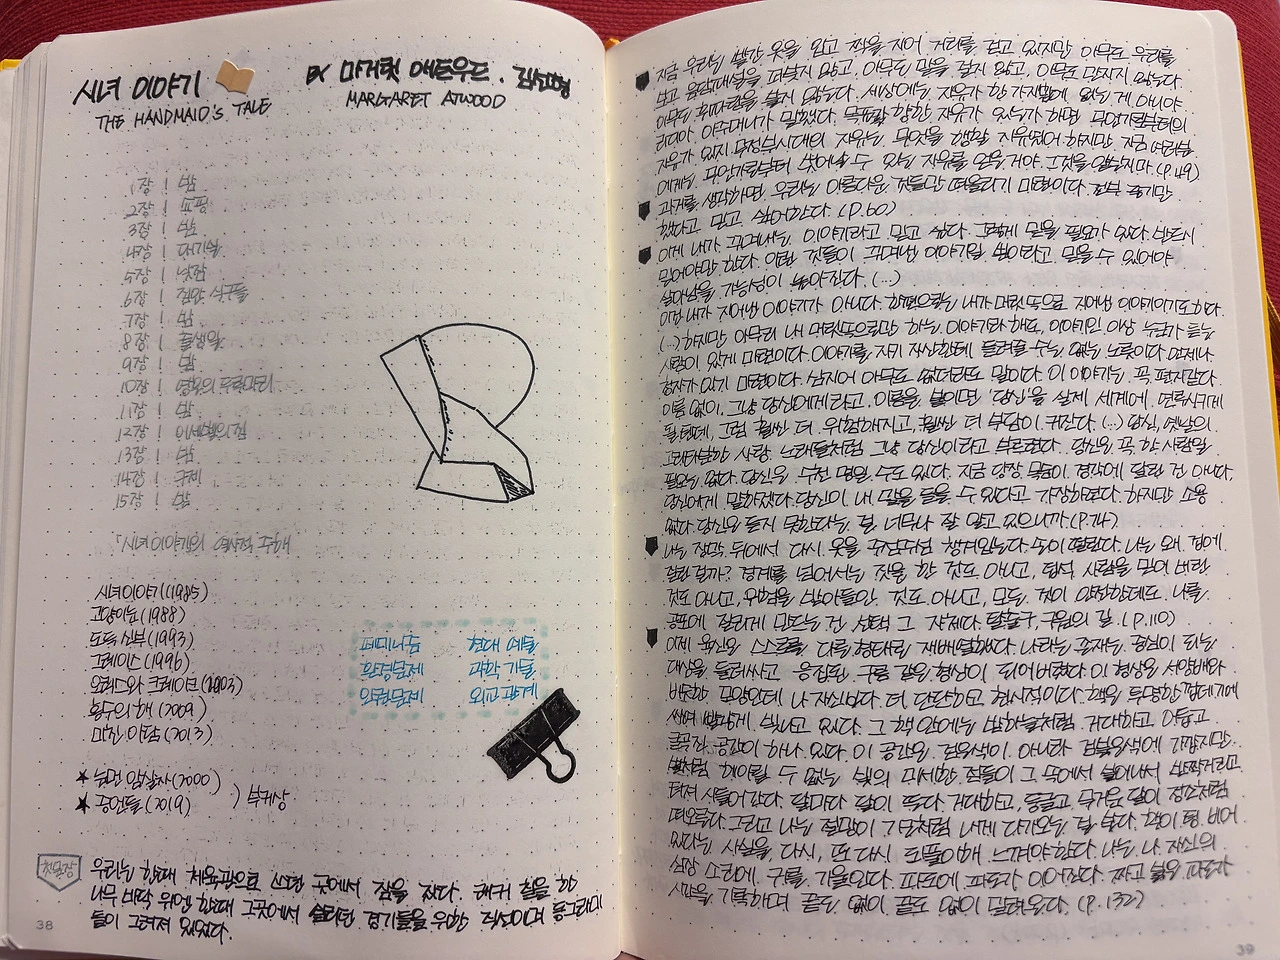 시녀 이야기
THE HANDMAID'S TALE
BY 마거릿 애트우드. 김선형
MARGARET ATWOOD
1장 | 밤
2장 | 쇼핑
3장 | 밤
4장 | 대기실
5장 | 낮잠
6장 | 집안 식구들
7장 | 밤
8장 | 출생일
9장 | 밤
10장 | 영혼의 두루마리
11장 | 밤
12장 | 이세벨의 집
13장 | 밤
14장 | 구제
15장 | 밤
「시녀 이야기」의 역사적 주해
시녀 이야기 (1985)
고양이 눈 (1988)
도둑 신부 (1993)
그레이스 (1996)
오릭스와 크레이크 (2003)
홍수의 해 (2009)
미친 아담 (2013)
★ 눈먼 암살자 (2000)
★ 증언들 (2019) ) 부커상
페미니즘 현대 예술
환경문제 과학 기술
인권문제 외교 관계
첫문장
우리는 한때 체육관으로 쓰던 곳에서 잠을 잤다. 래커 칠을 한
나무 바닥 위엔 한때 그곳에서 열리던 경기들을 위한 직선이며 동그라미
들이 그려져 있었다.
38
지금 우리는 빨간 옷을 입고 짝을 지어 거리를 걷고 있지만 아무도 우리를
보고 음담패설을 퍼붓지 않고, 아무도 말을 걸지 않고, 아무도 만지지 않는다.
아무도 휘파람을 불지 않는다. 세상에는 자유가 한 가지만 있는 게 아니야.
리디아 아주머니가 말했다. 목표를 향한 자유가 있는가 하면 무언가로부터의
자유가 있지. 무정부시대의 자유는, 무엇을 행할 자유였어. 하지만 지금 여러분
에게는, 무언가로부터 벗어날 수 있는 자유를 얻은 거야. 그것을 얕보지마. (p.49)
과거를 생각하면, 우리는 아름다운 것들만 떠올리기 마련이다. 전부 좋기만
했다고 믿고 싶어한다. (p.60)
이게 내가 꾸며내는 이야기라고 믿고 싶다. 그렇게 믿을 필요가 있다. 반드시
믿어야만 한다. 이런 것들이 꾸며낸 이야기일 뿐이라고 믿을 수 있어야
살아남을 가능성이 높아진다. (…)
이건 내가 지어낸 이야기가 아니다. 한편으로는 내가 머릿속으로 지어낸 이야기이기도 하다.
(…) 하지만 아무리 내 머릿속으로만 하는 이야기라 해도, 이야기인 이상 누군가 듣는
사람이 있게 마련이다. 이야기를 자기 자신한테 들려줄 수는 없는 노릇이다. 언제나
청자가 있기 마련이다. 심지어 아무도 없더라도 말이다. 이 이야기는 꼭 편지같다.
이름 없이, 그냥 당신에게라고. 이름을 붙이면 '당신'을 실제 세계에 연루시키게
될텐데, 그럼 훨씬 더 위험해지고, 훨씬 더 부담이 커진다. (…) 당신, 옛날의
그렇고그런 사랑 노래들처럼 그냥 당신이라고 부르련다. 당신은 꼭 한 사람일
필요는 없다. 당신은 수천 명일 수도 있다. 지금 당장 목숨이 경각에 달린 건 아니다.
당신에게 말하겠다. 당신이 내 말을 들을 수 있다고 가정하련다. 하지만 소용
없다. 당신은 듣지 못한다는 걸 너무나 잘 알고 있으니까. (p.74)
나는 장막 뒤에서 다시 옷을 주섬주섬 챙겨입는다. 손이 떨린다. 나는 왜 겁에
질린 걸까? 경계를 넘어서는 짓을 한 것도 아니고, 덥석 사람을 믿어 버린
것도 아니고, 위험을 받아들인 것도 아니고, 모든 것이 안전한데도. 나를
공포에 질리게 만드는 건 선택 그 자체다. 탈출구, 구원의 길. (p.110)
이제 육신은 스스로를 다른 형태로 재배열했다. 나라는 존재는, 중심이 되는
대상을 둘러싸고 응집된 구름 같은 형상이 되어버렸다. 이 형상은 서양배와
비슷한 모양인데 나 자신보다 더 단단하고 현실적이다. 핵은 투명한 껍데기에
싸여 빨갛게 빛나고 있다. 그 핵 안에는 밤하늘처럼 거대하고, 어둡고
굴곡진 공간이 하나 있다. 이 공간은 검은색이 아니라 검붉은색에 가깝지만.
헤아릴 수 없는 빛의 미세한 점들이 그 속에서 부풀어서 반짝거리고
터져 시들어간다. 달마다 달이 뜬다. 거대하고, 둥글고 무거운 달이 전조처럼
떠오른다. 그리고 나는 절망이 기근처럼 내게 다가오는 걸 본다. 텅 비어
있다는 사실을, 다시, 또 다시 되풀이해 느껴야 한다. 나는 나 자신의
심장 소리에 귀를 기울인다. 파도에 파도가 이어진다. 짜고 붉은 파도가
시간을 기록하며 끝도 없이 끝도 없이 밀려온다. (p.132)
39